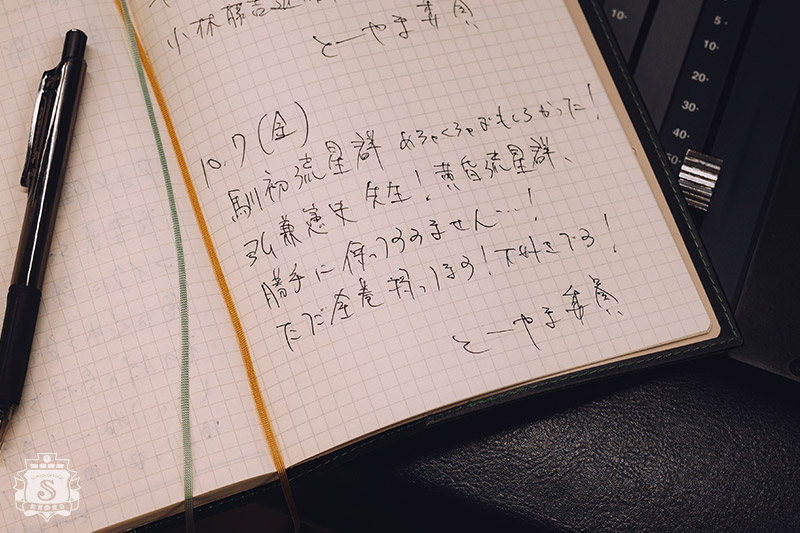 小林藤吉近
とーやま委員
10.7(金)
馴初流星群 めちゃくちゃおもしろかった!
弘兼憲史先生!黄昏流星群、
勝手に使ってすみません…!
ただ全巻持ってます!大好きです!
とーやま委員
10-
5-
10-
20-
30-
40-
50-
S